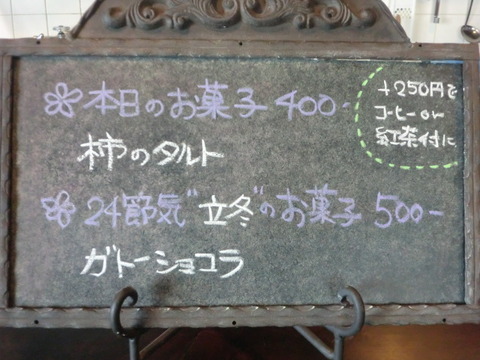 本日のお菓子 400-
柿のタルト
24節気"立冬"のお菓子 500-
ガトーショコラ
+250円で
コーヒーor
紅茶付に